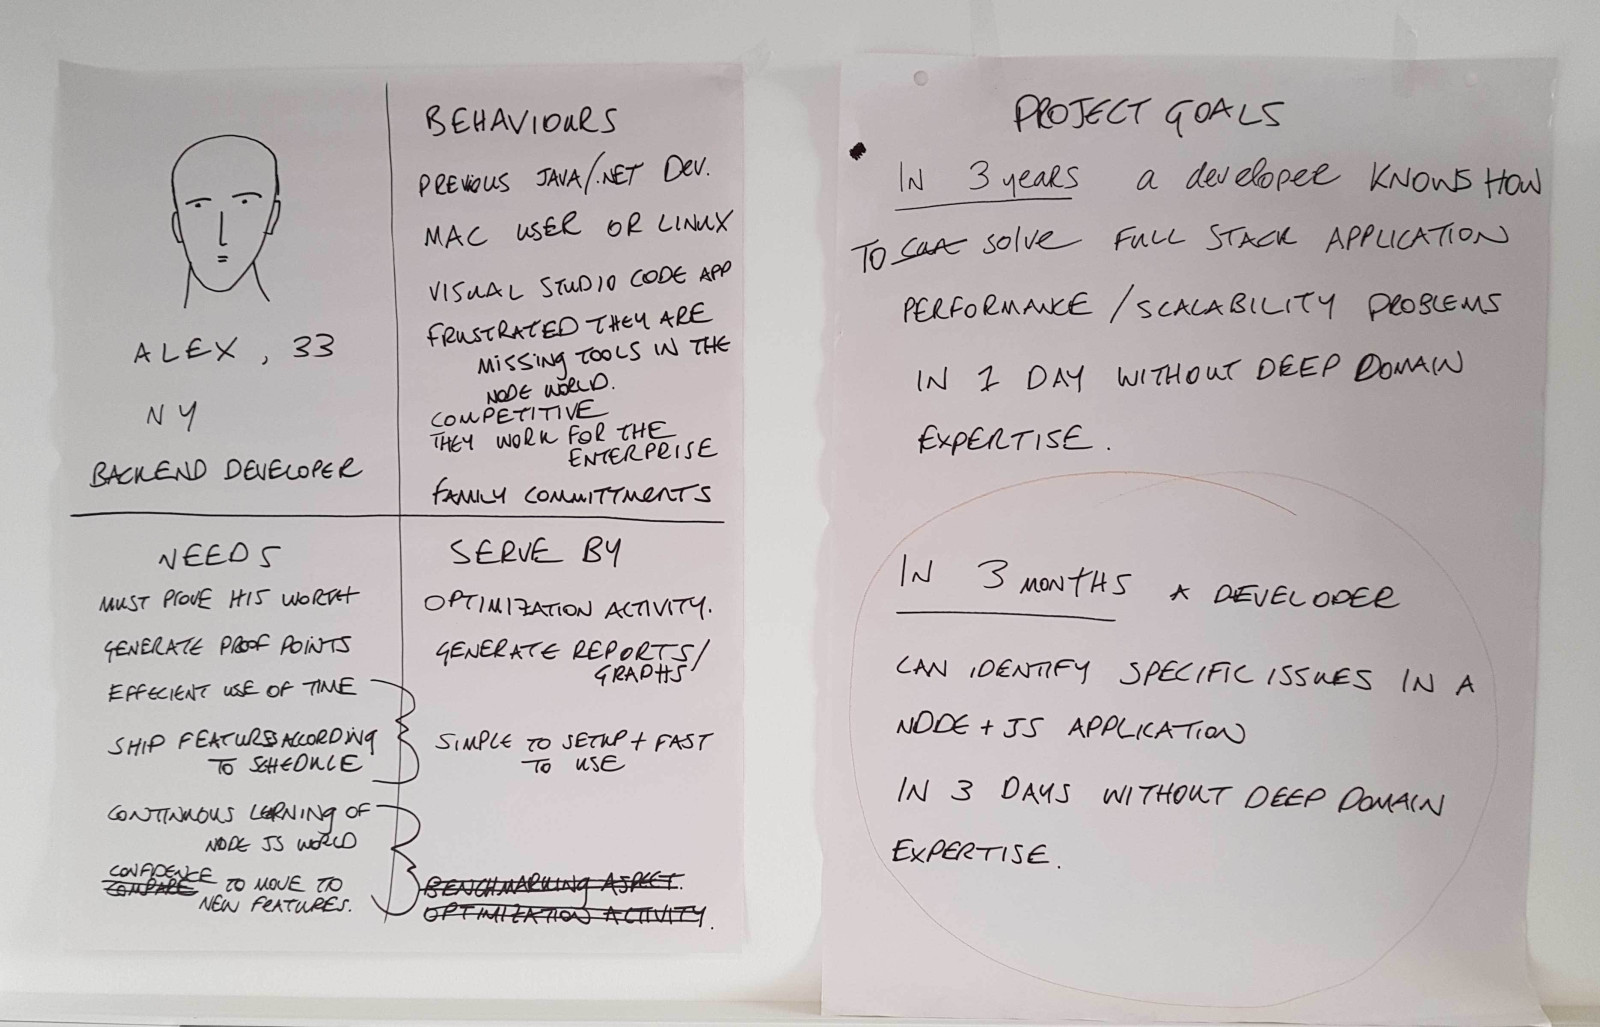 ALEX, 33
NY
BACKEND DEVELOPER
BEHAVIOURS
PREVIOUS JAVA/.NET DEV.
MAC USER OR LINUX
VISUAL STUDIO CODE APP
FRUSTRATED THEY ARE
MISSING TOOLS IN THE
NODE WORLD.
COMPETITIVE
THEY WORK FOR THE
ENTERPRISE
FAMILY COMMITTMENTS
NEEDS
MUST PROVE HIS WORTH
GENERATE PROOF POINTS
EFFECIENT USE OF TIME
SHIP FEATURES ACCORDING
TO SCHEDULE
CONTINUOUS LERNING OF
NODE JS WORLD
CONFIDENCE
COMPARE TO MOVE TO
NEW FEATURES.
SERVE BY
OPTIMIZATION ACTIVITY.
GENERATE REPORTS/
GRAPHS
SIMPLE TO SETUP + FAST
TO USE
BENCHMARKING ASPECT.
OPTIMIZATION ACTIVITY.
PROJECT GOALS
IN 3 years a developer KNOWS HOW
TO solve FULL STACK APPLICATION
PERFORMANCE / SCALABILITY PROBLEMS
IN 1 DAY WITHOUT DEEP DOMAIN
EXPERTISE.
IN 3 MONTHS A DEVELOPER
CAN IDENTIFY SPECIFIC ISSUES IN A
NODE + JS APPLICATION
IN 3 DAYS WITHOUT DEEP DOMAIN
EXPERTISE.